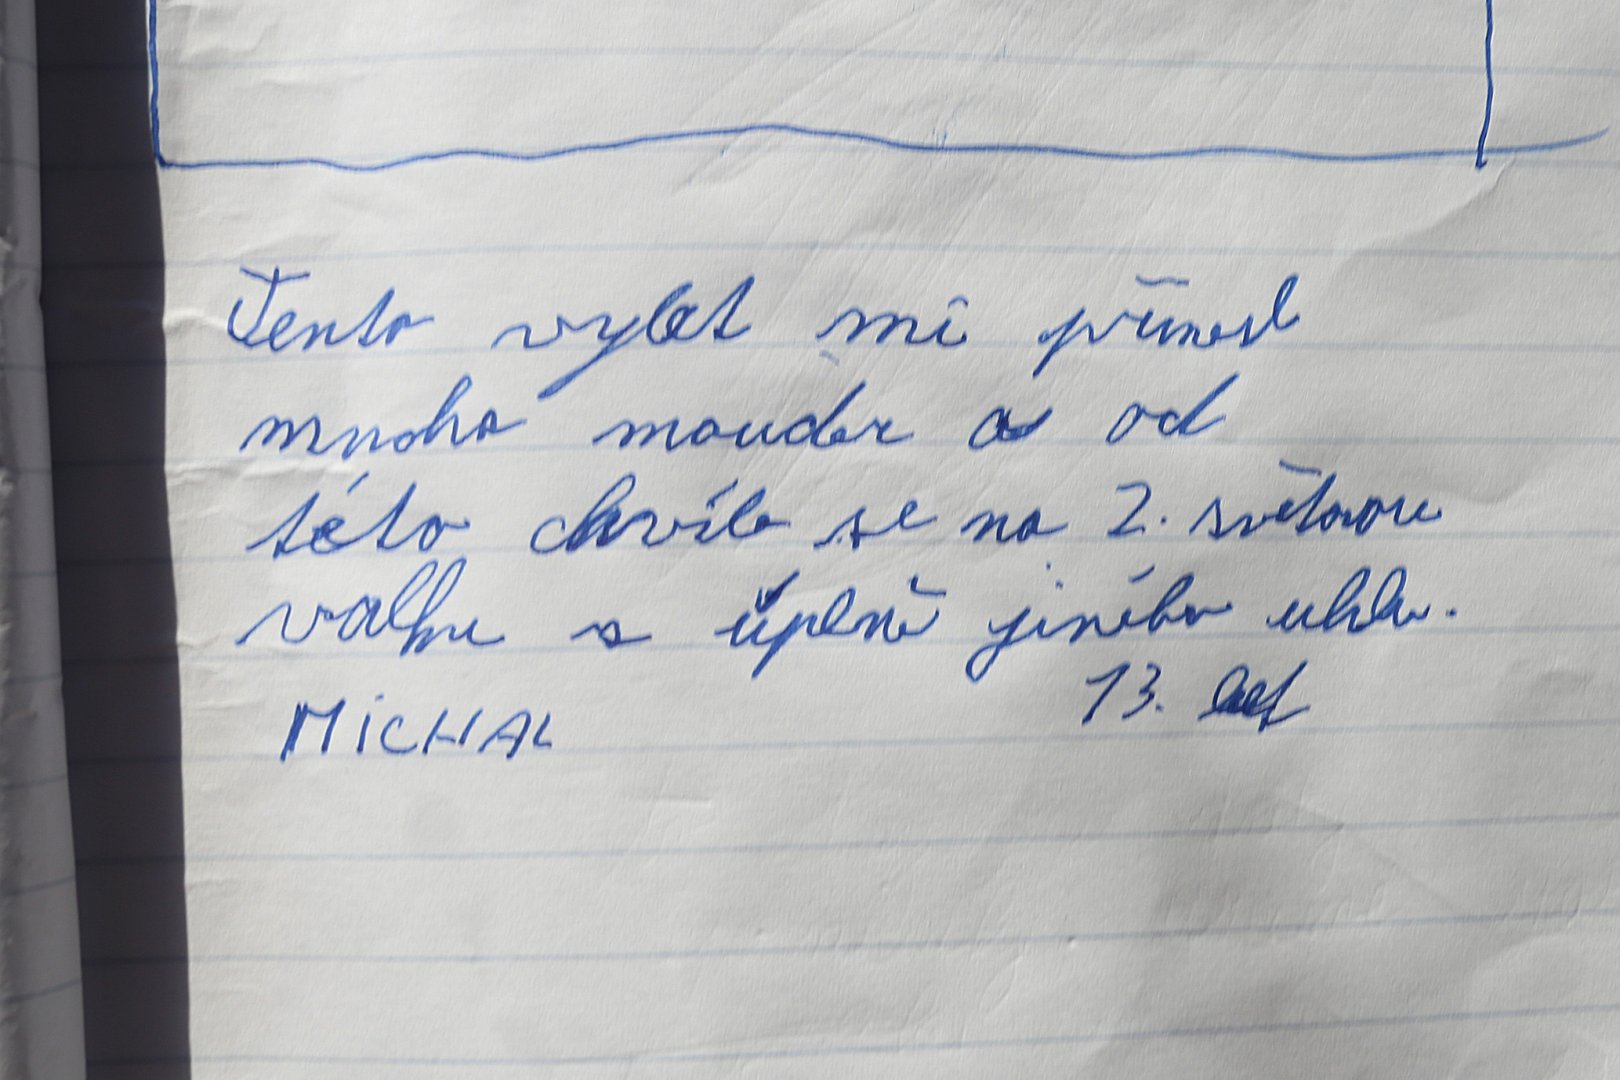 Tento vylet mi přinesl
mnoho mouder a od
této chvíle se na 2. světovou
valku s úplně jiného uhlu.
MICHAL 13. let